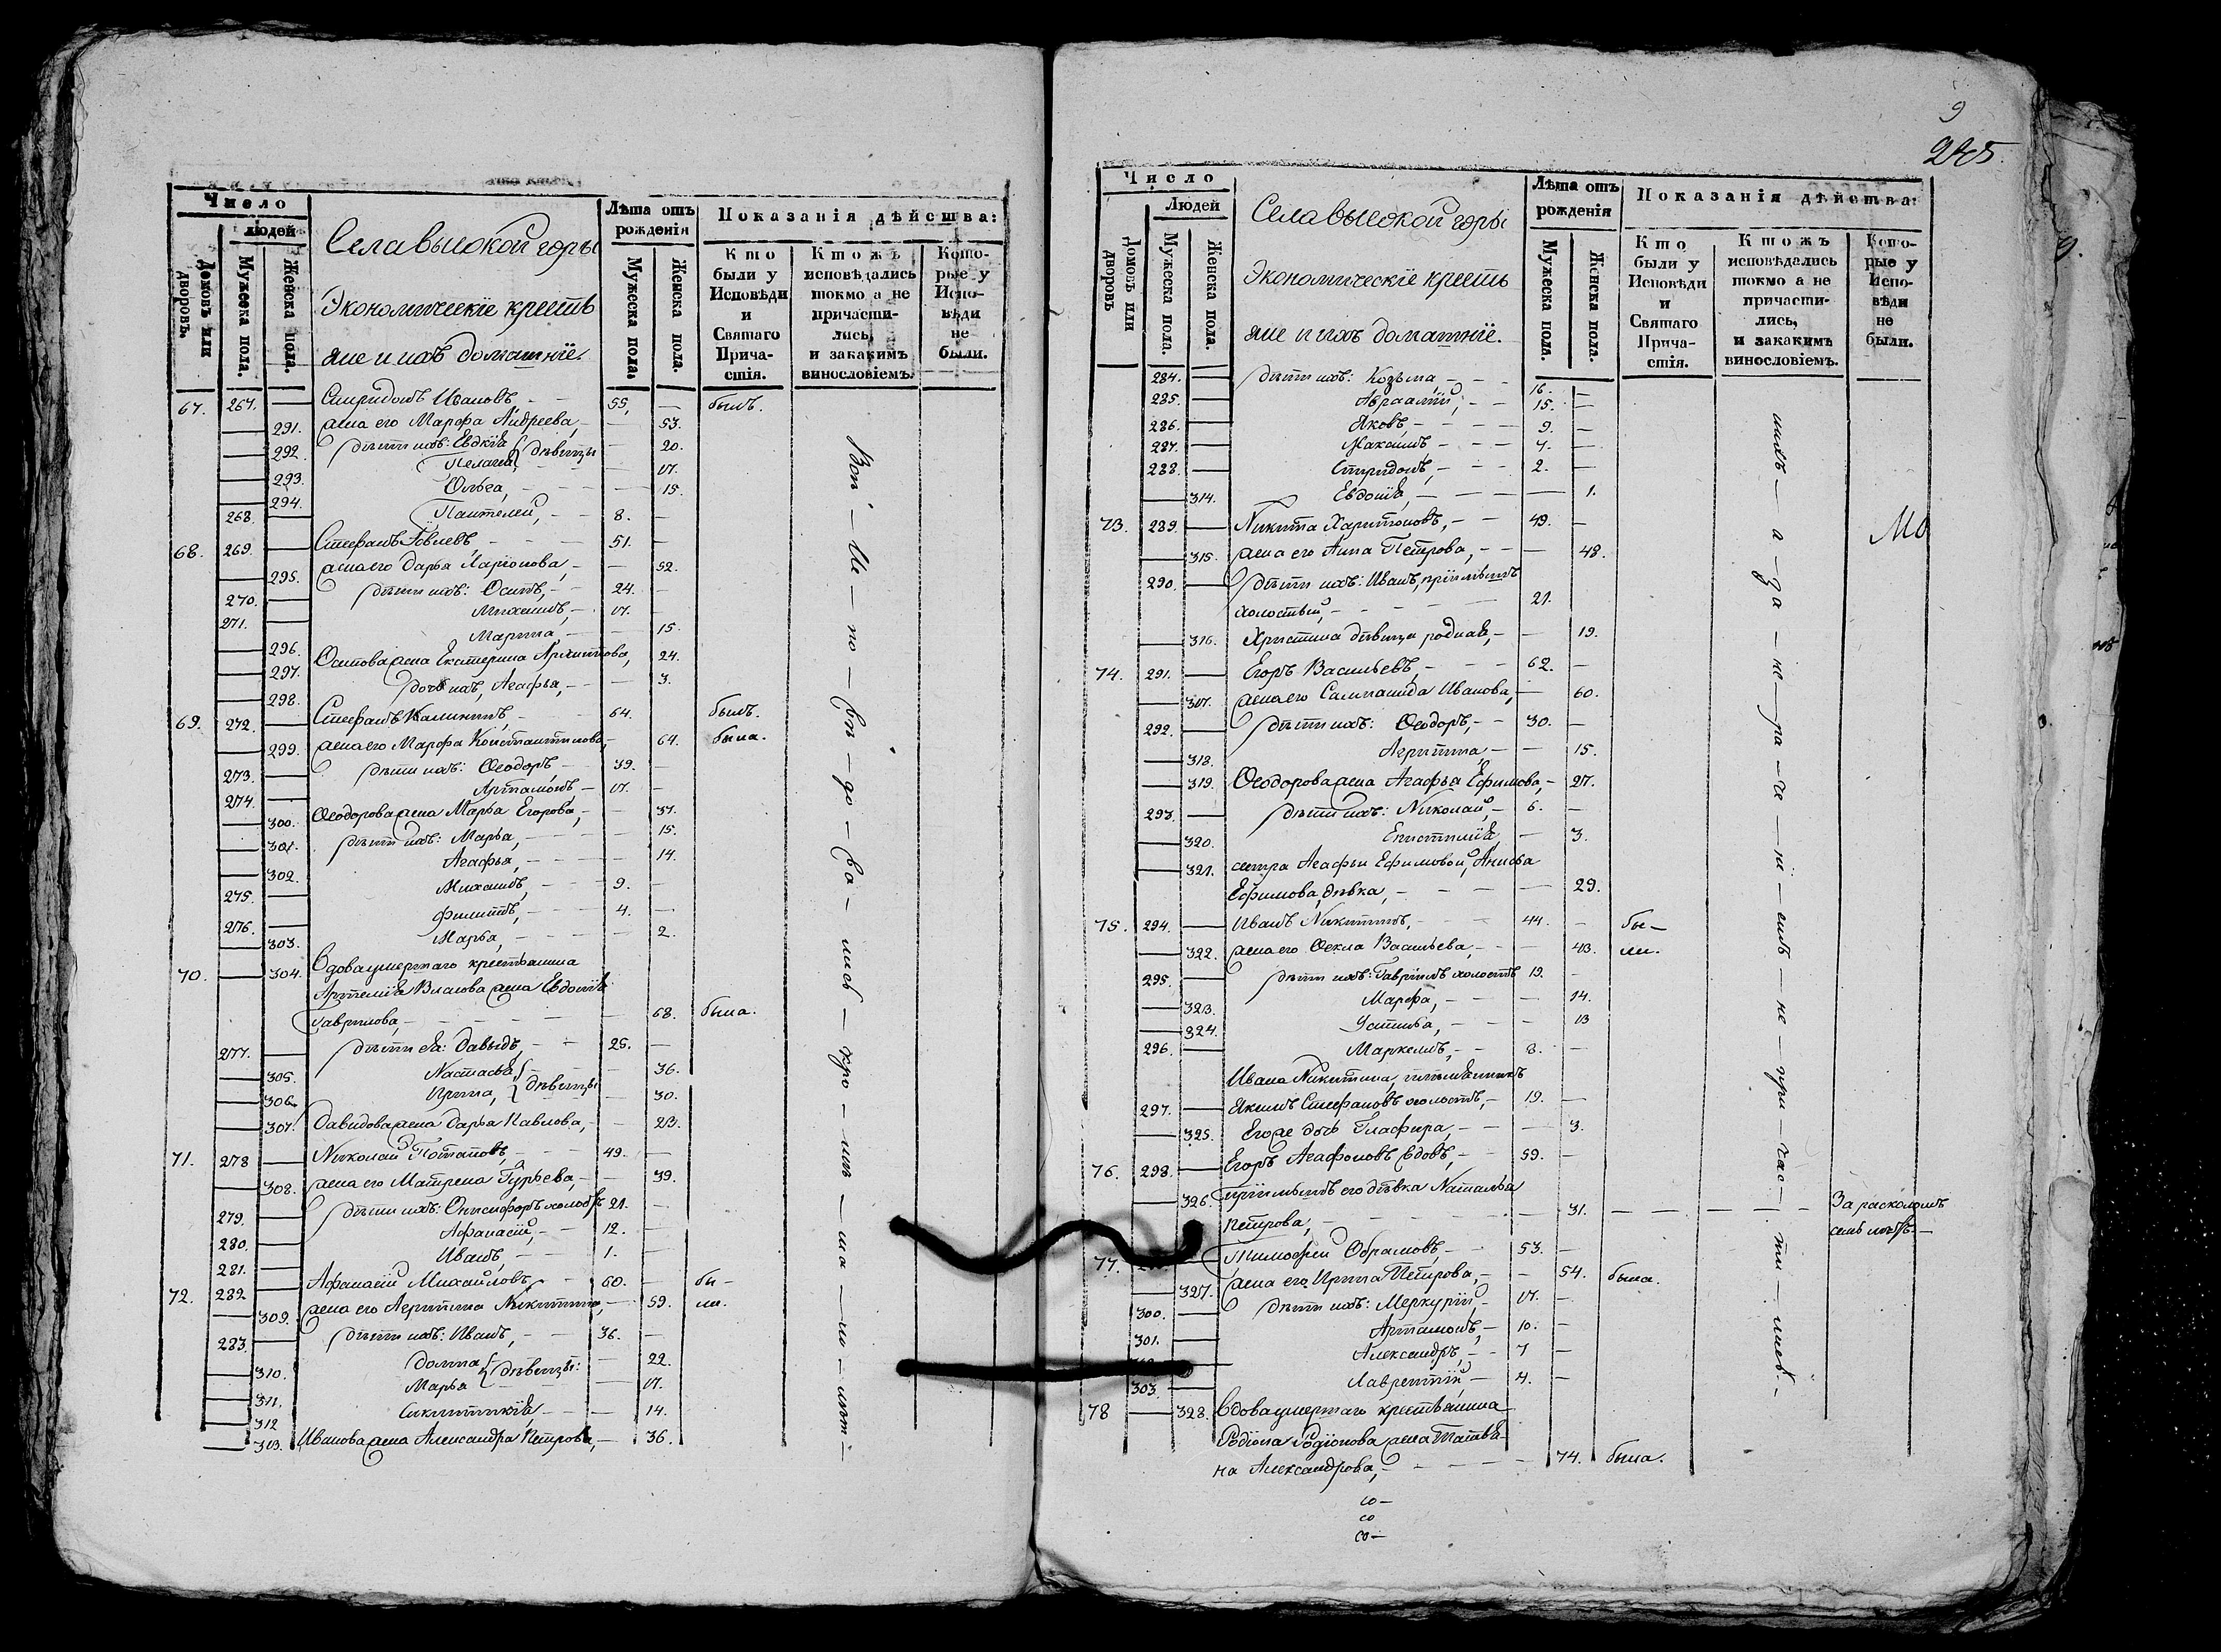 Число
людей
Домовъ или дворовъ.
Мужеска пола.
Женска пола.
Села высокой горы
Экономическіе кресть
яне и ихъ домашніе.
Лѣта отъ рожденія
Мужеска пола.
Женска пола.
Показанія дѣйства:
Кто были у Исповѣди и Святаго Прича-стія.
Ктожъ исповѣдались токмо а не причасти-лись, и закакимъ винословіемъ.
Кото-рые у Испо-вѣди не были.
67. 267. — Спиридонъ Ивановъ, 55, — былъ.
— 291. жена его Марфа Андреева, — 53.
— 292. дѣти ихъ: Евдкія } дѣвицы 20.
Пелагея } — 17.
— 293. Ольга, — 15.
— 294.
268. — Пантелей, 8. —
68. 269. — Стефанъ Іовлевъ 51. —
— 295. жена его Дарья Ларіонова, — 52.
270. — дѣти ихъ: Осипъ, 24. —
271. — Михаилъ, 17. —
— 296. Марина, — 15.
— 297. Осипова жена Екатерина Архипова, 24.
— 298. дочь ихъ, Агафья, — 3.
69. 272. — Стефанъ Калининъ, 64. былъ.
— 299. жена его Марфа Константинова, 64. была.
273. — дѣти ихъ: Ѳеодоръ, 39. —
274. — Артамонъ 17. —
— 300. Ѳеодорова жена Марья Егорова, — 37.
— 301. дѣти ихъ: Марья, — 15.
— 302. Агафья, — 14.
275. — Михаилъ, 9. —
276. — Филиппъ, 4. —
— 303. Марья, — 2.
70. — 304. Вдова умершаго крестьянина
Артемія Власова жена Евдокія
Гаврилова, — 68. была.
277. — дѣти ея: Давыдъ, 25. —
— 305. Настасья } — 36.
— 306. Ирина, } дѣвицы — 30.
— 307. Давидова жена Дарья Павлова, — 23.
71. 278 — Николай Потаповъ, 49. —
— 308. жена его Матрена Гурьева, — 39.
279. — дѣти ихъ: Онисифоръ холостъ 21. —
280. — Афанасій, 12. —
281. — Иванъ, 1. —
72. 282 — Афанасій Михайловъ, 60. — бы-
— 309. жена его Агрипина Никитина, — 59. ли.
283. — дѣти ихъ: Иванъ, 36. —
— 310. Домна } дѣвицы: — 22.
— 311. Марья } — 17.
— 312 Сиклитикія — 14.
— 313. Иванова жена Александра Петрова, — 36.
9
245.
Число
Людей
Домовъ или дворовъ
Мужеска пола.
Женска пола.
Села высокой горы
Экономическіе кресть
яне и ихъ домашніе.
Лѣта отъ рожденія
Мужеска пола.
Женска пола.
Показанія дѣйства:
Кто были у Исповѣди и Святаго Прича-стія.
Ктожъ исповѣдались токмо а не причасти-лись, и закакимъ винословіемъ.
Кото-рые у Испо-вѣди не были.
284. — дѣти ихъ: Козьма, 16. —
285. — Авраамій, 15. —
286. — Яковъ, 9. —
287. — Максимъ, 4. —
288. — Спиридонъ, 2. —
— 314. Евдокія, — 1.
73. 289. — Никита Харитоновъ, 49. —
— 315. жена его Анна Петрова, — 48.
290. — дѣти ихъ: Иванъ, пріимышъ
холостый, 21.
— 316. Христина дѣвица родная, — 19.
74. 291. — Егоръ Васильевъ, 62. —
— 317. жена его Саламанида Иванова, — 60.
292. — дѣти ихъ: Ѳеодоръ, 30. —
— 318. Агрипина, — 15.
— 319. Ѳеодорова жена Агафья Ефимова, — 27.
293. — дѣти ихъ: Николай, 6. —
— 320. Епистимія, — 3.
— 321. сестра Агафьи Ефимовой, Анисья
Ефимова, дѣвка, — 29.
75. 294. — Иванъ Никитинъ, 44. — бы-
— 322. жена его Ѳекла Васильева, — 43. ли.
295. — дѣти ихъ: Гаврилъ холостъ 19. —
— 323. Марфа, — 14.
— 324. Устинья, — 13
296. — Маркелъ, 8. —
Ивана Никитина, племянникъ
297. — Якимъ Стефановъ холостъ, 19. —
— 325. Его же дочь Глафира, — 3.
76. 298. — Егоръ Агафоновъ вдовъ, 59. —
— 326. пріимышъ его дѣвка Наталья
Петрова, — 31. За расколомъ
семь лѣтъ.
77. Тимофей Обрамовъ, 53. —
— 327. жена его Ирина Петрова, — 54. была.
300. — дѣти ихъ: Меркурій, 17. —
301. — Артамонъ, 10. —
Александръ, 7 —
303. — Лаврентій, 4. —
78 — 328. Вдова умершаго крестьянина
Родіона Родіонова жена Татья-
на Александрова, — 74. была.